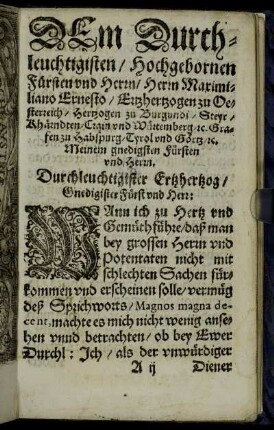 DEm Durch-
leuchtigisten / Hochgebornen
Fürsten vnd Herrn / Herrn Maximi-
liano Ernesto / Ertzhertzogen zu Oe-
sterreich / Hertzogen zu Burgundi / Steyr /
Khärndten / Crain vnd Würtemberg / ꝛc. Gra-
fen zu Habspurg / Tyrol vnd Görtz / ꝛc.
Meinem gnedigsten Fürsten
vnd Herrn.
Durchleuchtigister Ertzhertzog /
Gnedigister Fürst vnd Herr:
WAnn ich zu Hertz vnd
Gemüth führe / daß man
bey grossen Herrn vnd
Potentaten nicht mit
schlechten Sachen für-
kommen vnd erscheinen solle / vermüg
deß Sprichworts / Magnos magna de-
cent, machte es mich nicht wenig anse-
hen vnnd betrachten / ob bey Ewer
Durchl: Ich / als der vnwürdiger
A ij Diener